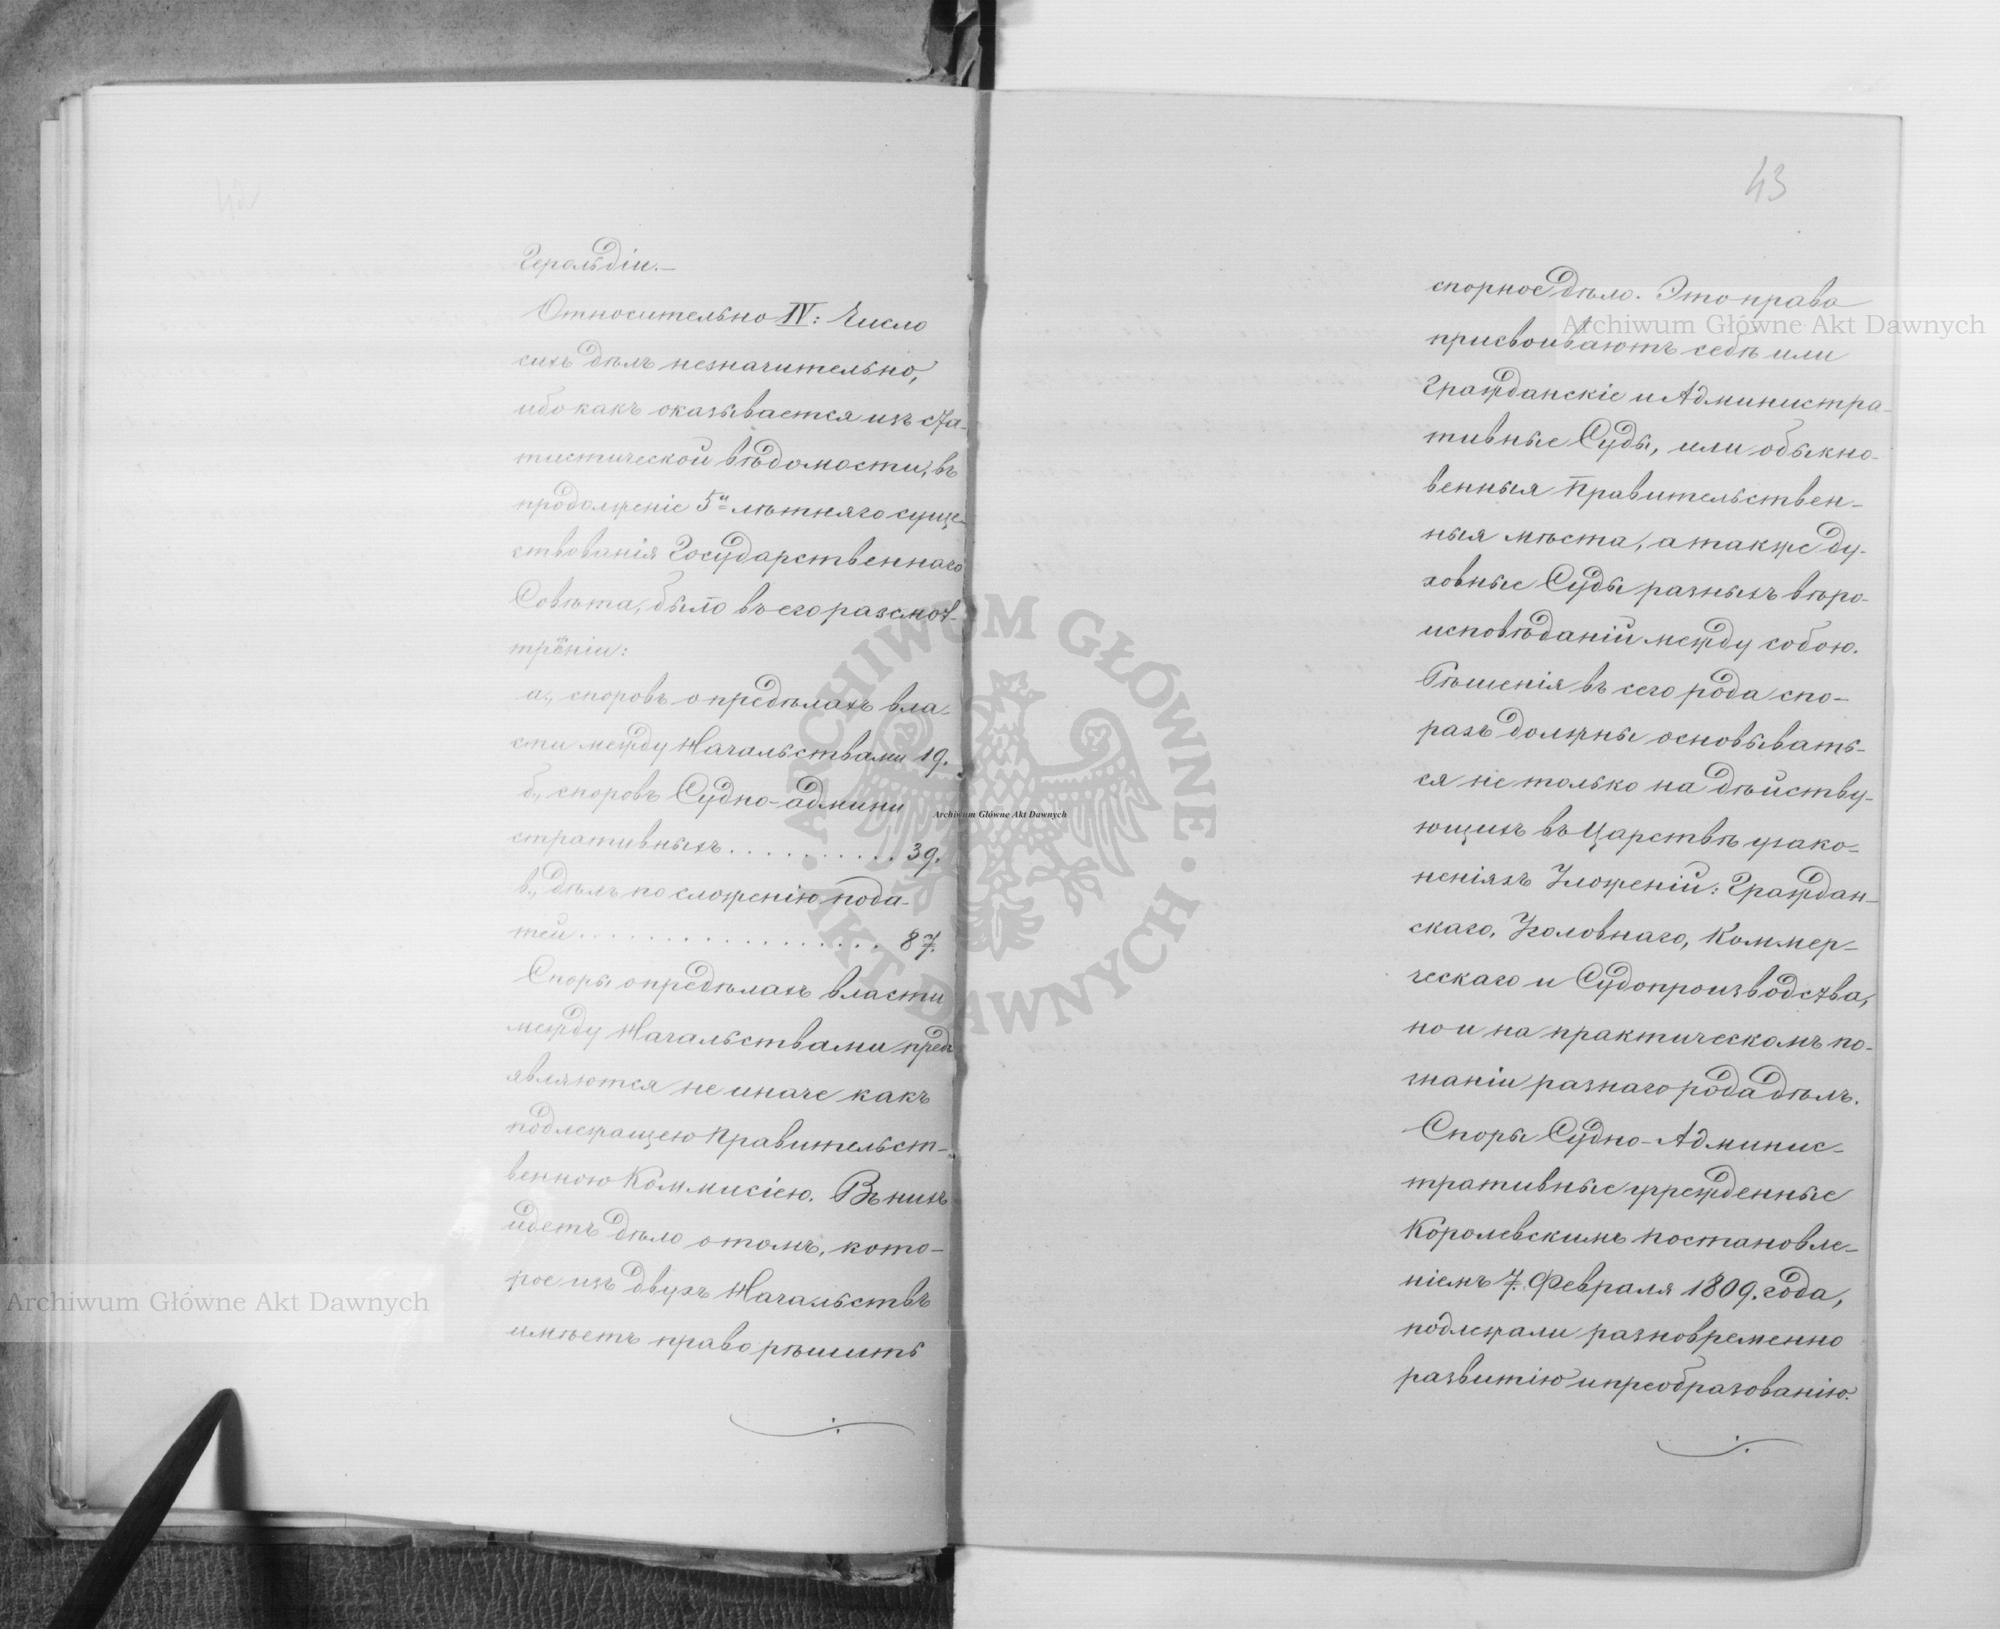 Герольдіи.—
Относительно IV: Число
сихъ дѣлъ незначительно,
ибо какъ оказывается изъ ста-
тистической вѣдомости, въ
продолженіе 5и лѣтняго суще-
ствованія Государственнаго
Совѣта, было въ его разсмот-
трѣніи:
а., споровъ о предѣлахъ вла-
сти между Начальствами 19.
б., споровъ Судно-админи
стративныхъ . . . . . . . . . . 39.
в., дѣлъ по сложенію пода-
тей . . . . . . . . . . . . . . . . . 87.
Споры о предѣлахъ власти
между Начальствами предъ
являются не иначе какъ
подлежащею Правительст-
венною Коммисіею. Въ нихъ
идетъ дѣло о томъ, кото-
рое изъ двухъ Начальствъ
имѣетъ право рѣшить
43
спорное дѣло. Это право
присвоиваютъ себѣ или
Гражданскіе и Администра-
тивные Суды, или обыкно-
венныя Правительствен-
ныя мѣста, а также ду-
ховные Суды разныхъ вѣро-
исповѣданій между собою.
Рѣшенія въ сего рода спо-
рахъ должны основывать-
ся не только на дѣйству-
ющихъ въ Царствѣ узако-
неніяхъ Уложеній: Граждан-
скаго, Уголовнаго, Коммер-
ческаго и Судопроизводства,
но и на практическомъ по-
знаніи разнаго рода дѣлъ.
Споры Судно-Админис-
тративные учрежденные
Королевскимъ постановле-
ніемъ 7. Февраля 1809. года,
подлежали разновременно
развитію и преобразованію.
Archiwum Główne Akt Dawnych
Archiwum Główne Akt Dawnych
Archiwum Główne Akt Dawnych
ARCHIWUM GŁÓWNE · AKT DAWNYCH ·